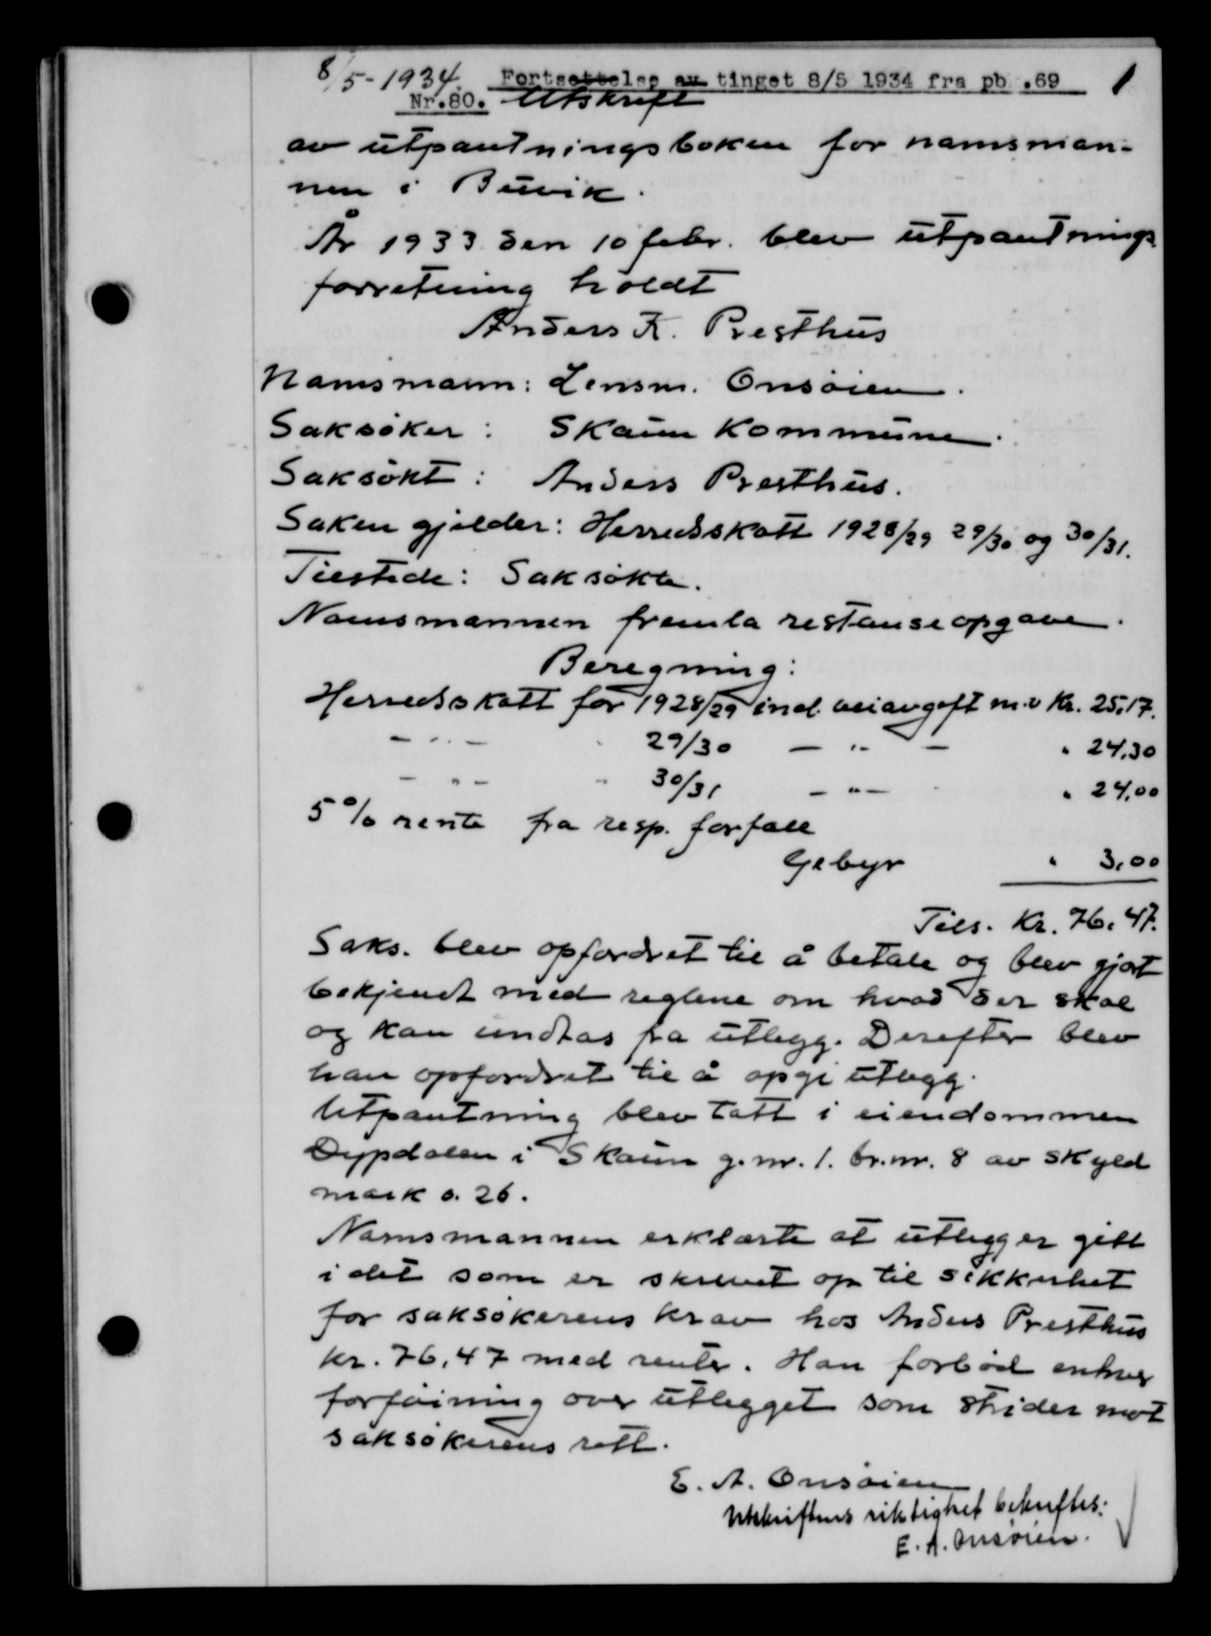 8/5-1934. Fortsettelse av tinget 8/5 1934 fra pb .69 1
Nr.80. Utskrift
av utpantningsboken for namsman-
nen i Buvik.
År 1933 den 10 febr. blev utpantnings
forretning holdt
Anders K. Presthus
Namsmann: Lensm. Onsøien.
Saksøker: Skaun Kommune.
Saksøkt: Anders Presthus.
Saken gjelder: Herredsskatt 1928/29 29/30 og 30/31.
Tilstede: Saksøkte.
Namsmannen fremla restanseopgave.
Beregning:
Herredsskatt for 1928/29 incl. veiavgift m.v Kr. 25,17.
- " - " 29/30 - " - " 24,30
- " - " 30/31 - " - " 24,00
5 % rente fra resp. forfall
Gebyr " 3,00
Tils. Kr. 76,47.
Saks. blev opfordret til å betale og blev gjort
bekjendt med reglene om hvad der skal
og kan undtas fra utlegg. Derefter blev
han opfordret til å opgi utlegg.
Utpantning blev tatt i eiendommen
Dypdalen i Skaun g.nr. 1. br.nr. 8 av skyld
mark 0.26.
Namsmannen erklærte at utlegg er gitt
i det som er skrevet op til sikkerhet
for saksøkerens krav hos Anders Presthus
kr. 76,47 med renter. Han forbød enhver
forføining over utlegget som strider mot
saksøkerens rett.
E. A. Onsøien
Utskriftens riktighet bekreftes:
E. A. Onsøien.